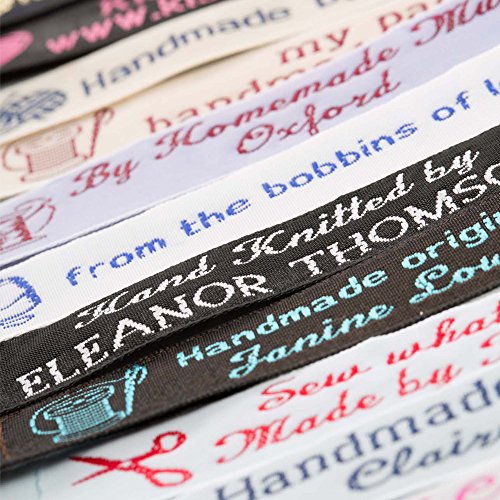 www.k
Handmade b
my pa
handma
By Homemade Mu
Oxford
from the bobbins of l
Hand Knitted by
ELEANOR THOMSO
Handmade origi
Janine Low
Sew what
Made by
Handmade
Clair